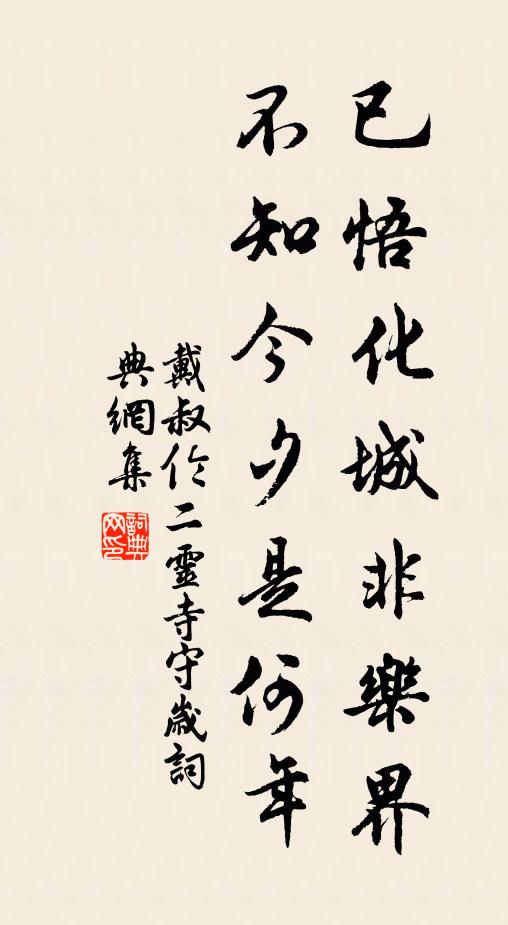 已悟化城非樂界
不知今夕是何年
戴叔伦二靈寺守歲詞
典網集
詞典網印